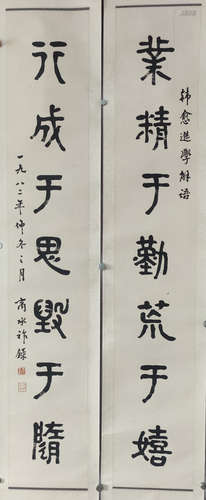 韩愈進學解語
業精于勤荒于嬉
行成于思毀于隨
一九八二年仲冬之月
商承祚錄